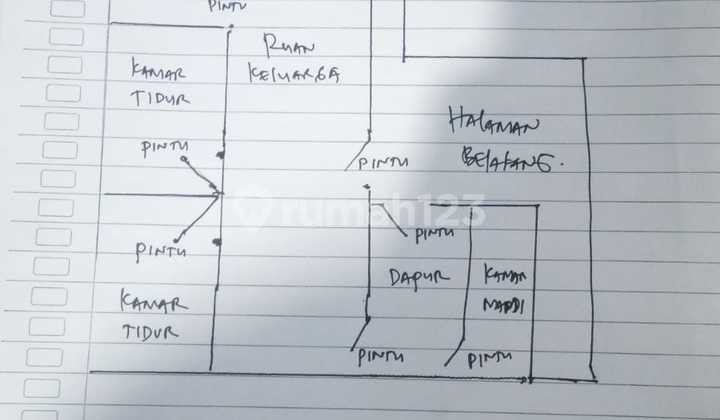 PINTU
RUAN
KELUARGA
KAMAR
TIDUR
HALAMAN
BELAKANG.
PINTU
PINTU
rumah123
PINTU
PINTU
DAPUR
KAMAR
MANDI
KAMAR
TIDUR
PINTU
PINTU